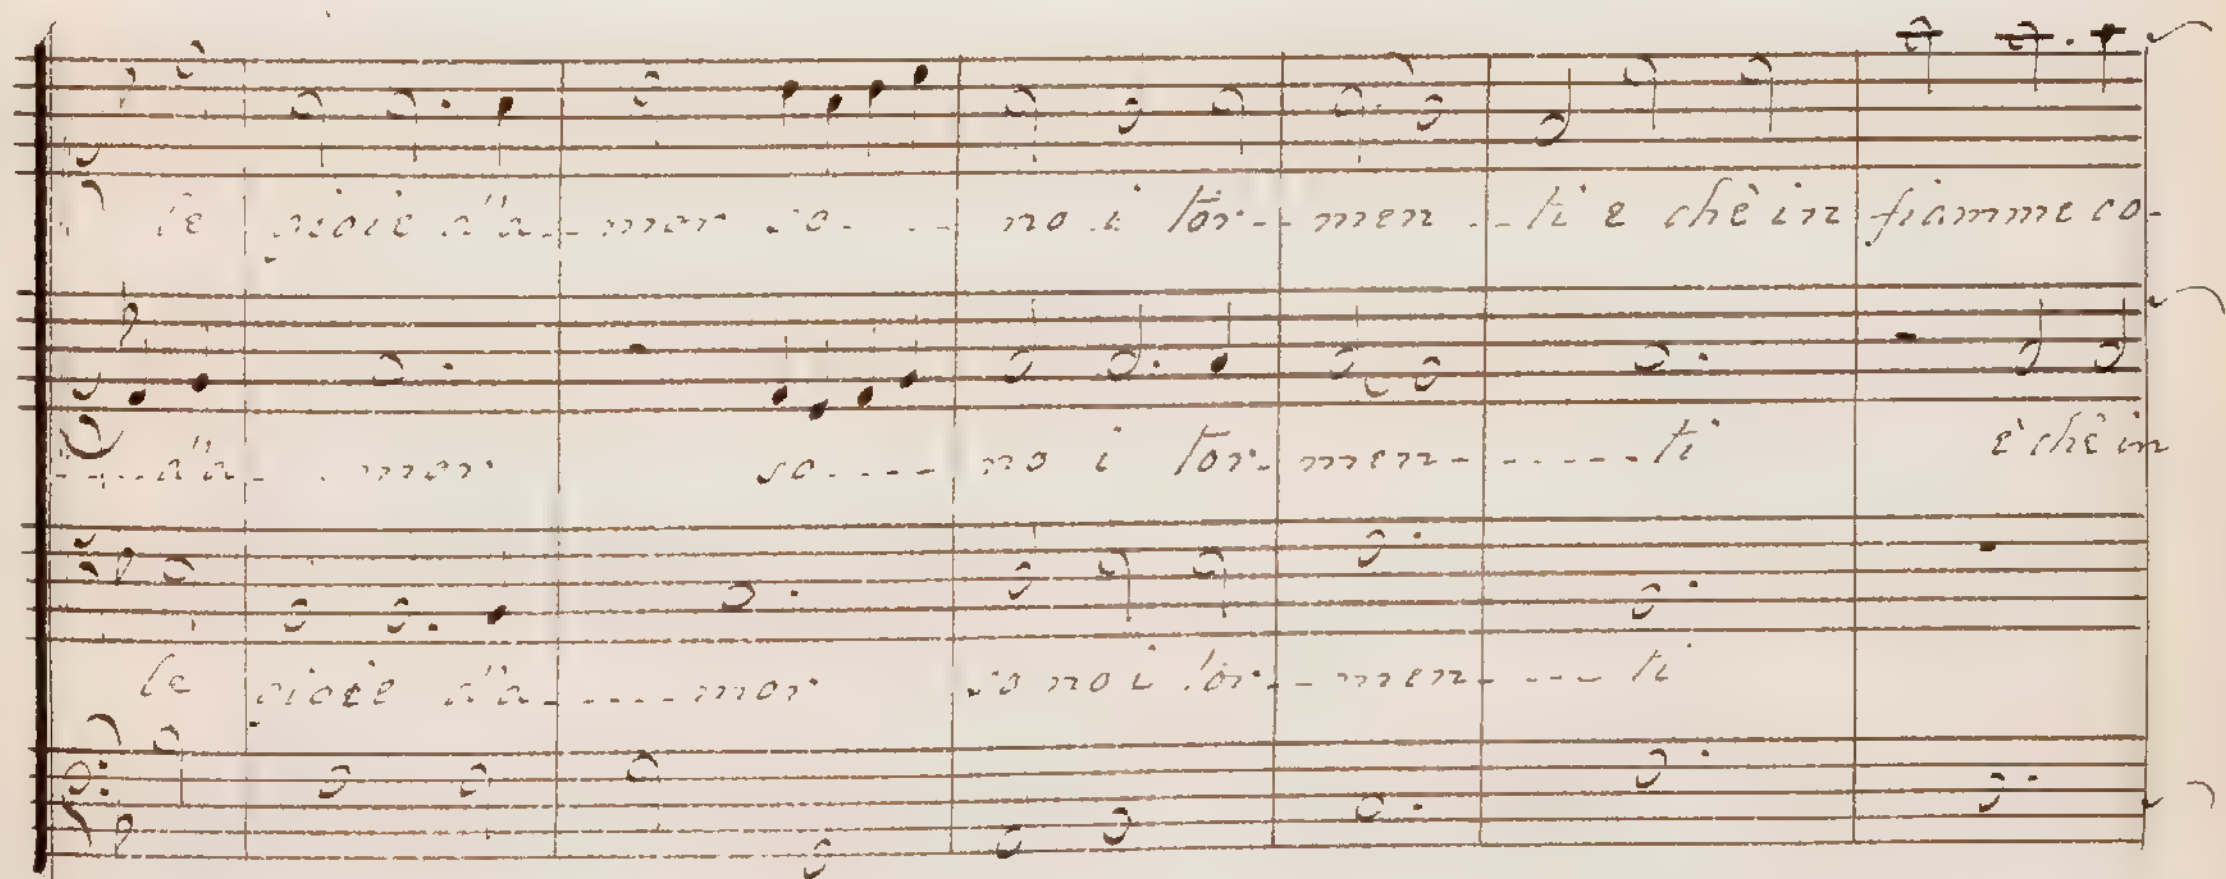 le gioie d'a-- mor so- - -- no i tor-- men --ti e chè in fiamme co-
----d'a- - mor so----- no i tor- men- -----ti è chê in
le gioie d'a- ----mor so no i tor-- men- --- ti